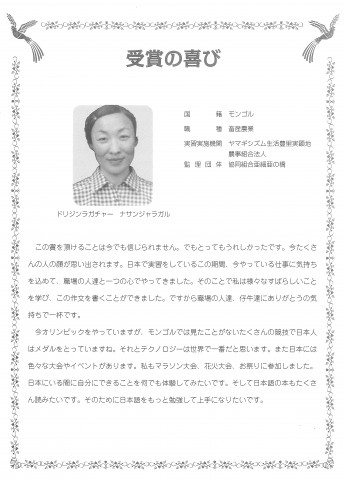 受賞の喜び
国　　籍　モンゴル
職　　種　畜産農業
実習実施機関　ヤマギシズム生活豊里実顕地
農事組合法人
監理団体　協同組合亜細亜の橋
ドリジンラガチャー　ナサンジャラガル
この賞を頂けることは今でも信じられません。でもとってもうれしかったです。今たくさ
んの人の顔が思い出されます。日本で実習をしているこの期間、今やっている仕事に気持ち
を込めて、職場の人達と一つの心でやってきました。そのことで私は様々なすばらしいこと
を学び、この作文を書くことができました。ですから職場の人達、仔牛達にありがとうの気
持ちで一杯です。
今オリンピックをやっていますが、モンゴルでは見たことがないたくさんの競技で日本人
はメダルをとっていますね。それとテクノロジーは世界で一番だと思います。また日本には
色々な大会やイベントがあります。私もマラソン大会、花火大会、お祭りに参加しました。
日本にいる間に自分にできることを何でも体験してみたいです。そして日本語の本もたくさ
ん読みたいです。そのために日本語をもっと勉強して上手になりたいです。